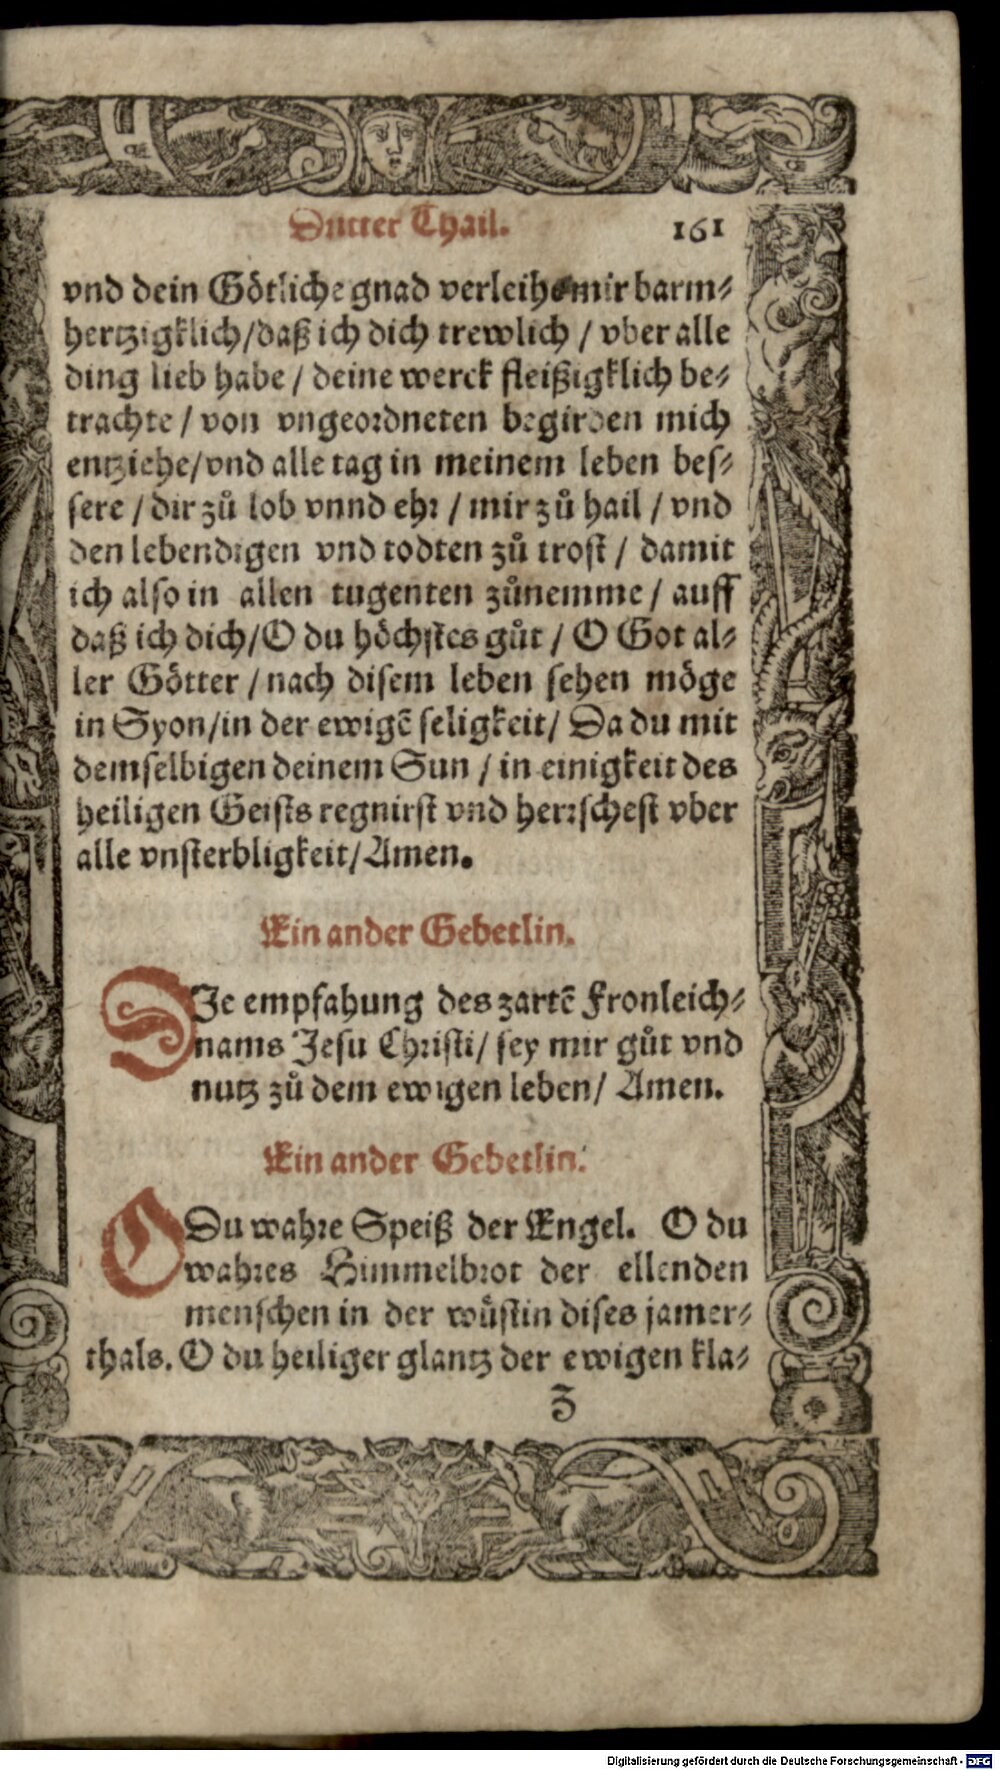 Dritter Thail. 161
vnd dein Götliche gnad verleih mir barm⸗
hertzigklich/daß ich dich trewlich / vber alle
ding lieb habe / deine werck fleißigklich be⸗
trachte / von vngeordneten begirden mich
entziehe/vnd alle tag in meinem leben bes⸗
sere / dir zů lob vnnd ehr / mir zů hail / vnd
den lebendigen vnd todten zů trost / damit
ich also in allen tugenten zůnemme / auff
daß ich dich/O du höchstes gůt / O Got al⸗
ler Götter / nach disem leben sehen möge
in Syon/in der ewigẽ seligkeit/ Da du mit
demselbigen deinem Sun / in einigkeit des
heiligen Geists regnirst vnd herrschest vber
alle vnsterbligkeit/Amen.
Ein ander Gebetlin.
DIe empfahung des zartẽ Fronleich⸗
nams Jesu Christi/ sey mir gůt vnd
nutz zů dem ewigen leben/ Amen.
Ein ander Gebetlin.
O Du wahre Speiß der Engel. O du
wahres Himmelbrot der ellenden
menschen in der wůstin dises jamer⸗
thals. O du heiliger glantz der ewigen kla⸗
Z
Digitalisierung gefördert durch die Deutsche Forschungsgemeinschaft - DFG